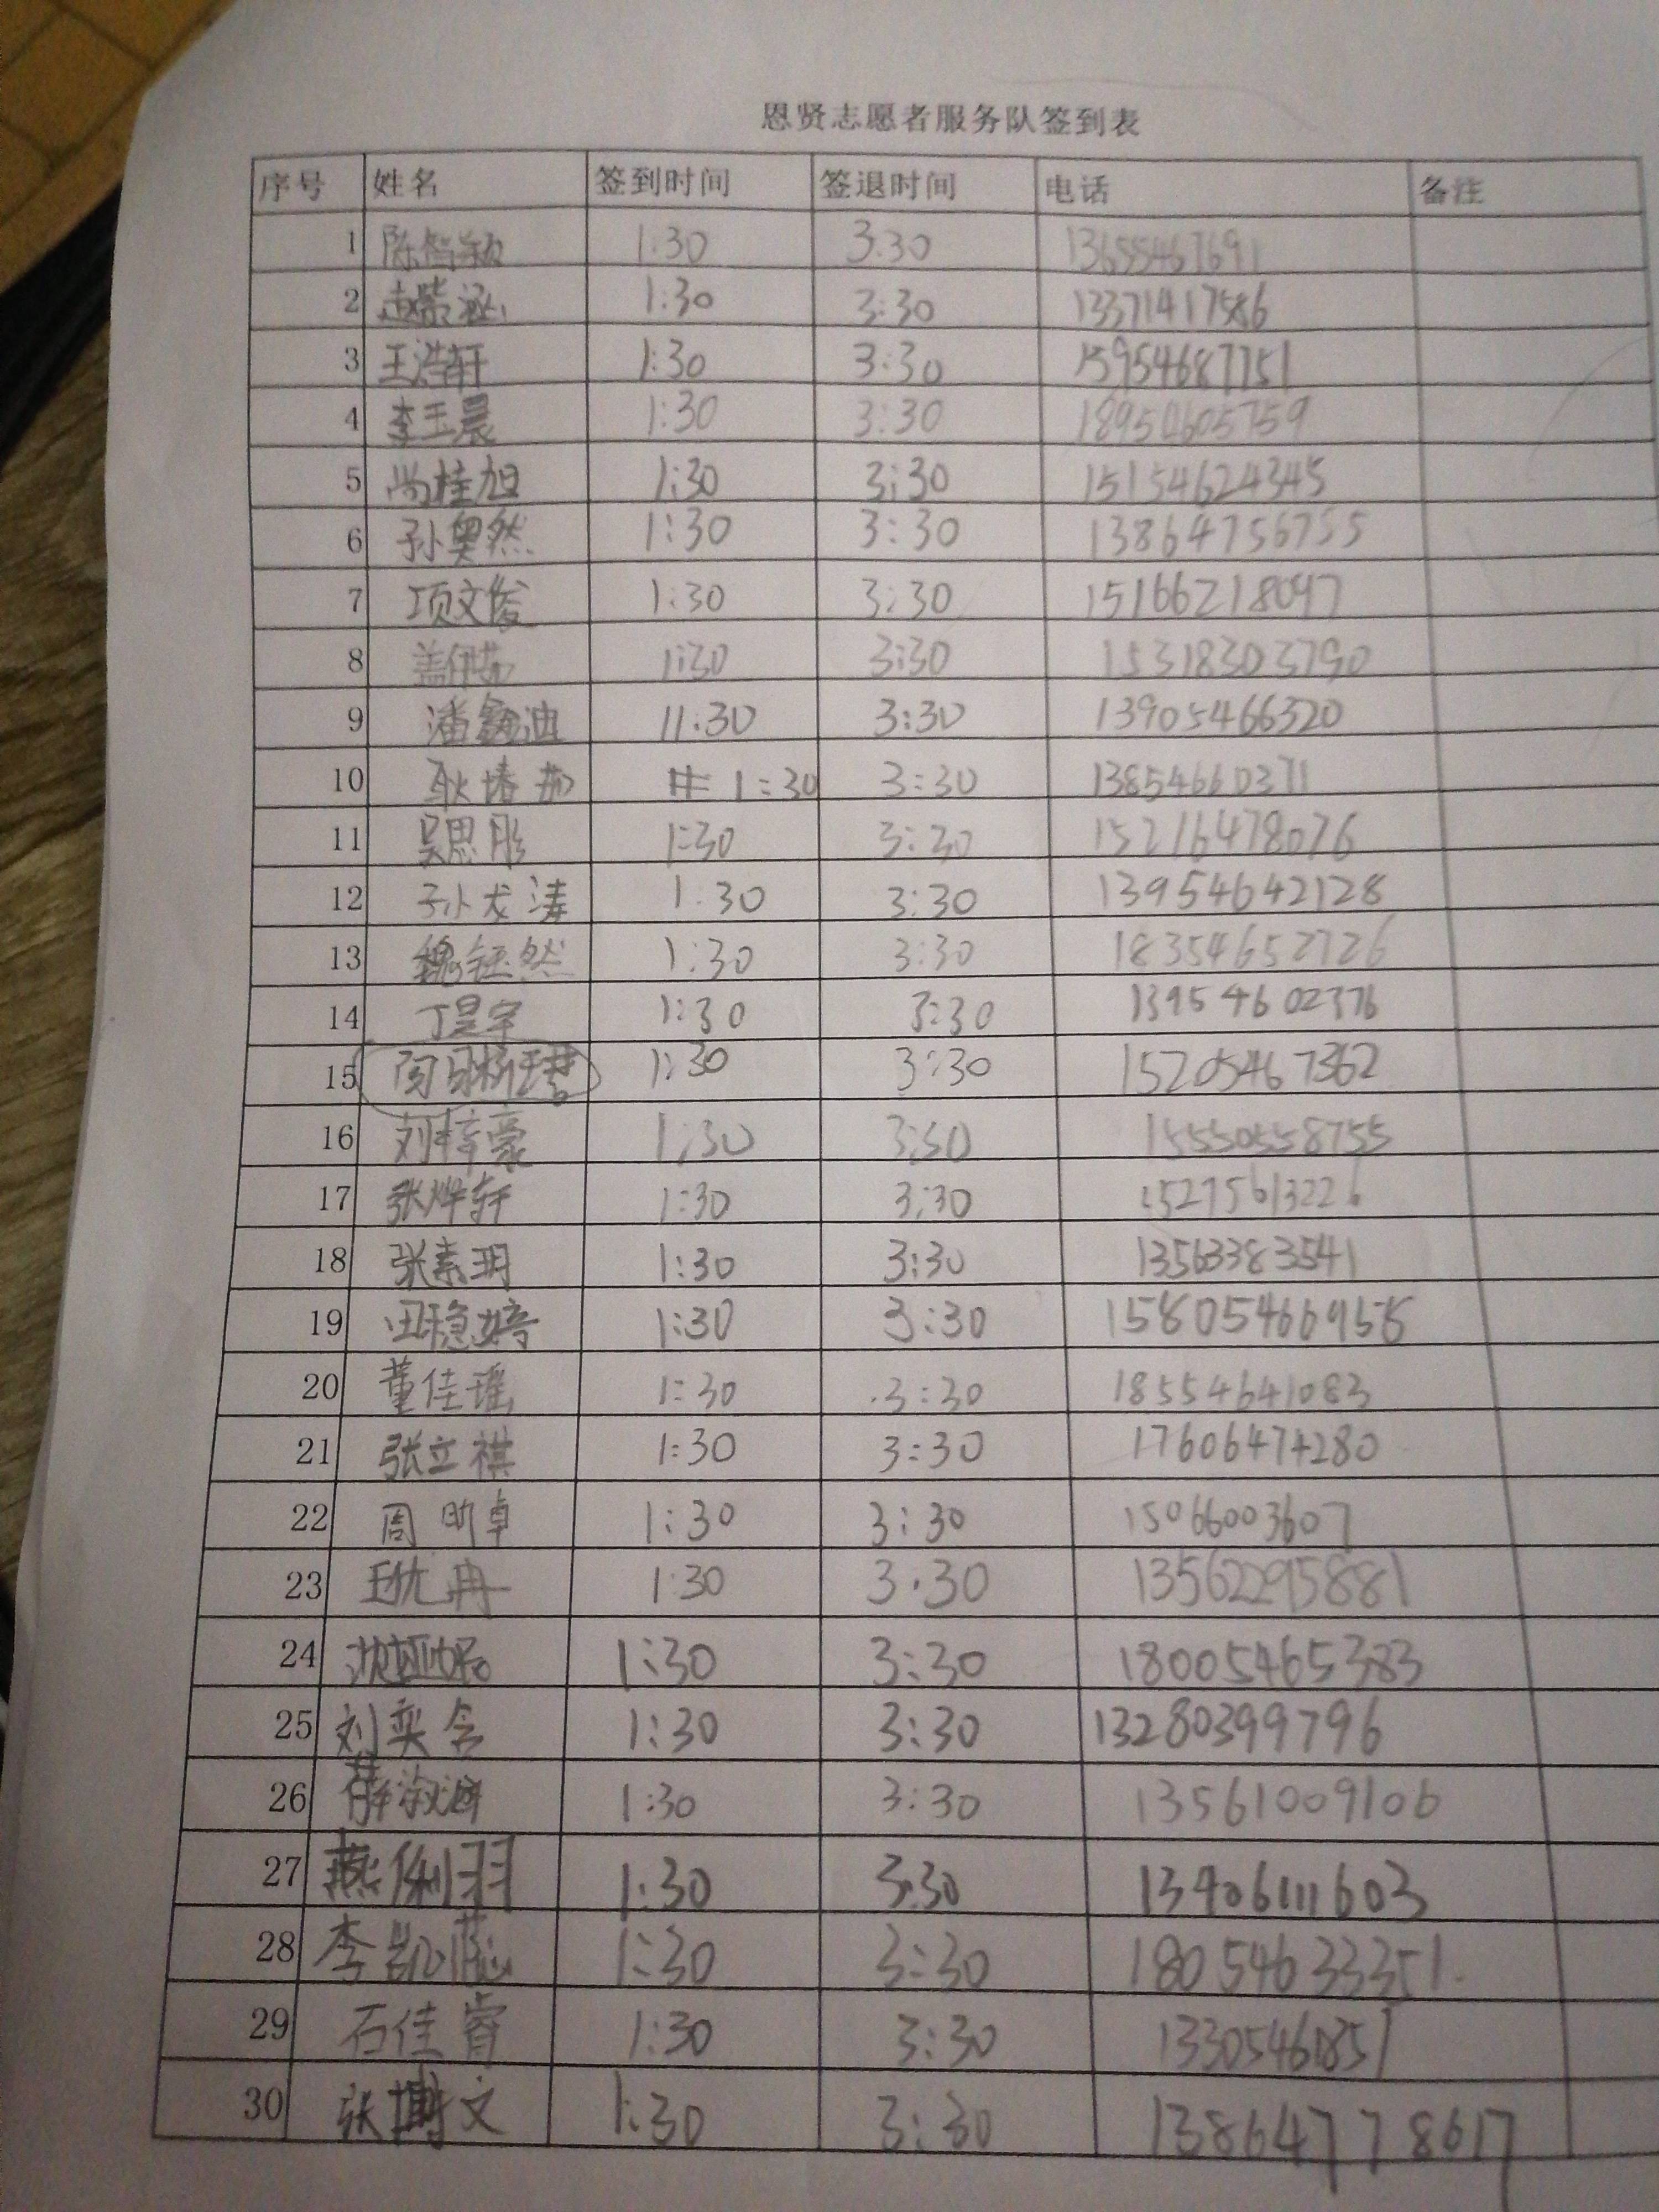 恩贤志愿者服务队签到表
序号 姓名 签到时间 签退时间 电话 备注
1 陈智颖 1:30 3:30 13655467691
2 赵紫涵 1:30 3:30 13371417586
3 王浩轩 1:30 3:30 15954687751
4 李玉晨 1:30 3:30 18954605759
5 尚桂旭 1:30 3:30 15154624345
6 孙奥然 1:30 3:30 13864756755
7 项文俊 1:30 3:30 15166218097
8 盖伊茹 1:30 3:30 15318303790
9 潘鑫迪 11:30 3:30 13905466320
10 耿椿茹 1:30 3:30 13854660371
11 吴思彤 1:30 3:30 15216478076
12 孙龙涛 1:30 3:30 13954642128
13 魏钰然 1:30 3:30 18354652726
14 丁昊宇 1:30 3:30 13954602376
15 1:30 3:30 15205467362
16 刘梓豪 1:30 3:30 15550558755
17 张烨轩 1:30 3:30 15275613226
18 张素玥 1:30 3:30 13563383541
19 田稳婷 1:30 3:30
20 董佳瑶 1:30 3:30 18554641083
21 张立祺 1:30 3:30 17606474280
22 周昀卓 1:30 3:30 15066003607
23 王优冉 1:30 3:30 13562295881
24 1:30 3:30 18005465383
25 刘奕含 1:30 3:30 13280399796
26 薛淑涵 1:30 3:30 13561009106
27 燕俐羽 1:30 3:30 13406111603
28 李凯 1:30 3:30 18054633351
29 石佳睿 1:30 3:30 13305461851
30 张博文 1:30 3:30 13864778617